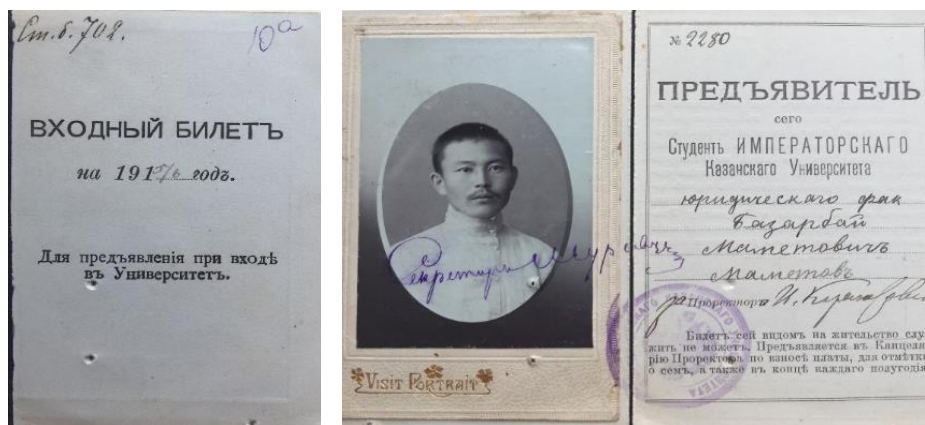 Ст.б.702.
10а
ВХОДНЫЙ БИЛЕТЪ
на 1915/6 годъ.
Для предъявленія при входѣ
въ Университетъ.
Секретарь
VISIT PORTRAIT
№ 2280
ПРЕДЪЯВИТЕЛЬ
сего
Студентъ ИМПЕРАТОРСКАГО
Казанскаго Университета
юридическаго фак
Базарбай
Маметовичъ
Маметовъ
Проректоръ
Билетъ сей видомъ на жительство слу
жить не можетъ. Предъявляется въ Канцеля
рію Проректора по взносѣ платы, для отмѣтки
о семъ, а также въ концѣ каждаго полугодія